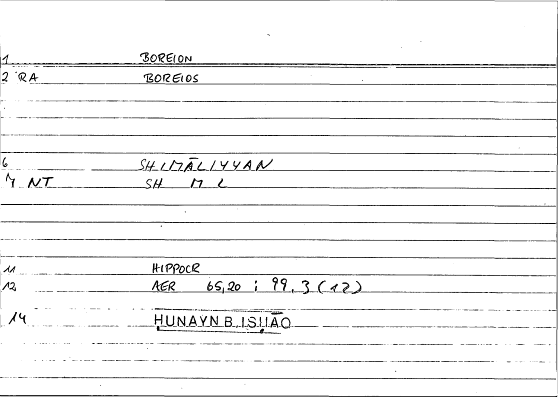 1 BOREION
2 RA BOREIOS
6 SHIMĀLIYYAN
7 NT SH M L
11 HIPPOCR
12 AER 65,20 ; 99,3 (12)
14 ḤUNAYN B. ISḤĀQ